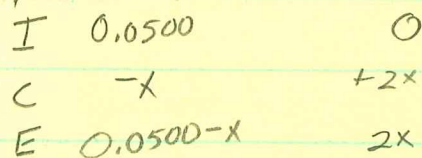 I 0.0500 0
C -x +2x
E 0.0500-x 2x